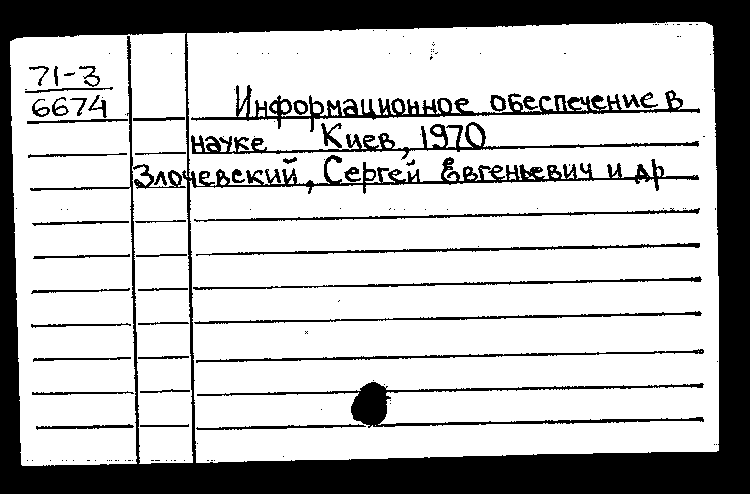 71-3
6674
Информационное обеспечение в
науке Киев, 1970
Злочевский, Сергей Евгеньевич и др